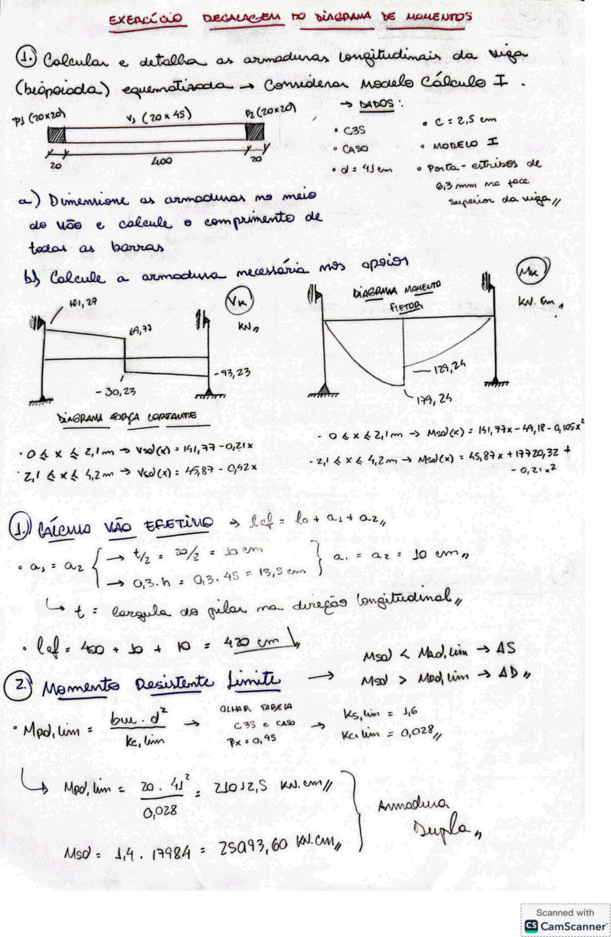 EXERCÍCIO DECALAGEM DO DIAGRAMA DE MOMENTOS
1. Calcular e detalha as armaduras longitudinais da viga
(biapoiada) esquematizada → Considerar Modelo Cálculo I.
P1 (20x20) V1 (20x45) P2 (20x20)
20 400 20
→ DADOS:
• C35
• CA50
• d = 41 cm
• C = 2,5 cm
• MODELO I
• Porta-estribos de
6,3 mm na face
superior da viga,,
a) Dimensione as armaduras no meio
do vão e calcule o comprimento de
todas as barras
b) Calcule a armadura necessária nos apoios
101,27
VK
KN,,
69,77
- 30,23
- 93,23
DIAGRAMA FORÇA CORTANTE
DIAGRAMA MOMENTO
FLETOR
MK
KN.cm,,
129,24
179,24
• 0 ≤ x ≤ 2,1m → Vsd(x) = 141,77 - 0,21x
• 2,1 ≤ x ≤ 4,2m → Vsd(x) = 45,87 - 0,42x
- 0 ≤ x ≤ 2,1m → Msd(x) = 141,77x - 49,18 - 0,105x²
- 2,1 ≤ x ≤ 4,2m → Msd(x) = 45,87x + 17720,32 +
- 0,21x²
1. CÁLCULO VÃO EFETIVO → lef = lo + a1 + a2,,
• a1 = a2 { → t/2 = 20/2 = 10 cm
→ 0,3.h = 0,3.45 = 13,5 cm } a1 = a2 = 10 cm,,
↳ t = largula do pilar na direção longitudinal,,
• lef = 400 + 10 + 10 = 420 cm
2. Momento Resistente Limite → Msd < Mrd,lim → AS
Msd > Mrd,lim → AD,,
• Mrd,lim = bw.d² / Kc,lim → OLHAR TABELA
C35 e CA50
βx = 0,45
→ Ks,lim = 1,6
Kc,lim = 0,028,,
↳ Mrd,lim = 20.41² / 0,028 = 21012,5 KN.cm,,
Msd = 1,4 . 17984 = 25093,60 KN.cm,,
Armadura
Dupla,,
Scanned with
CS CamScanner